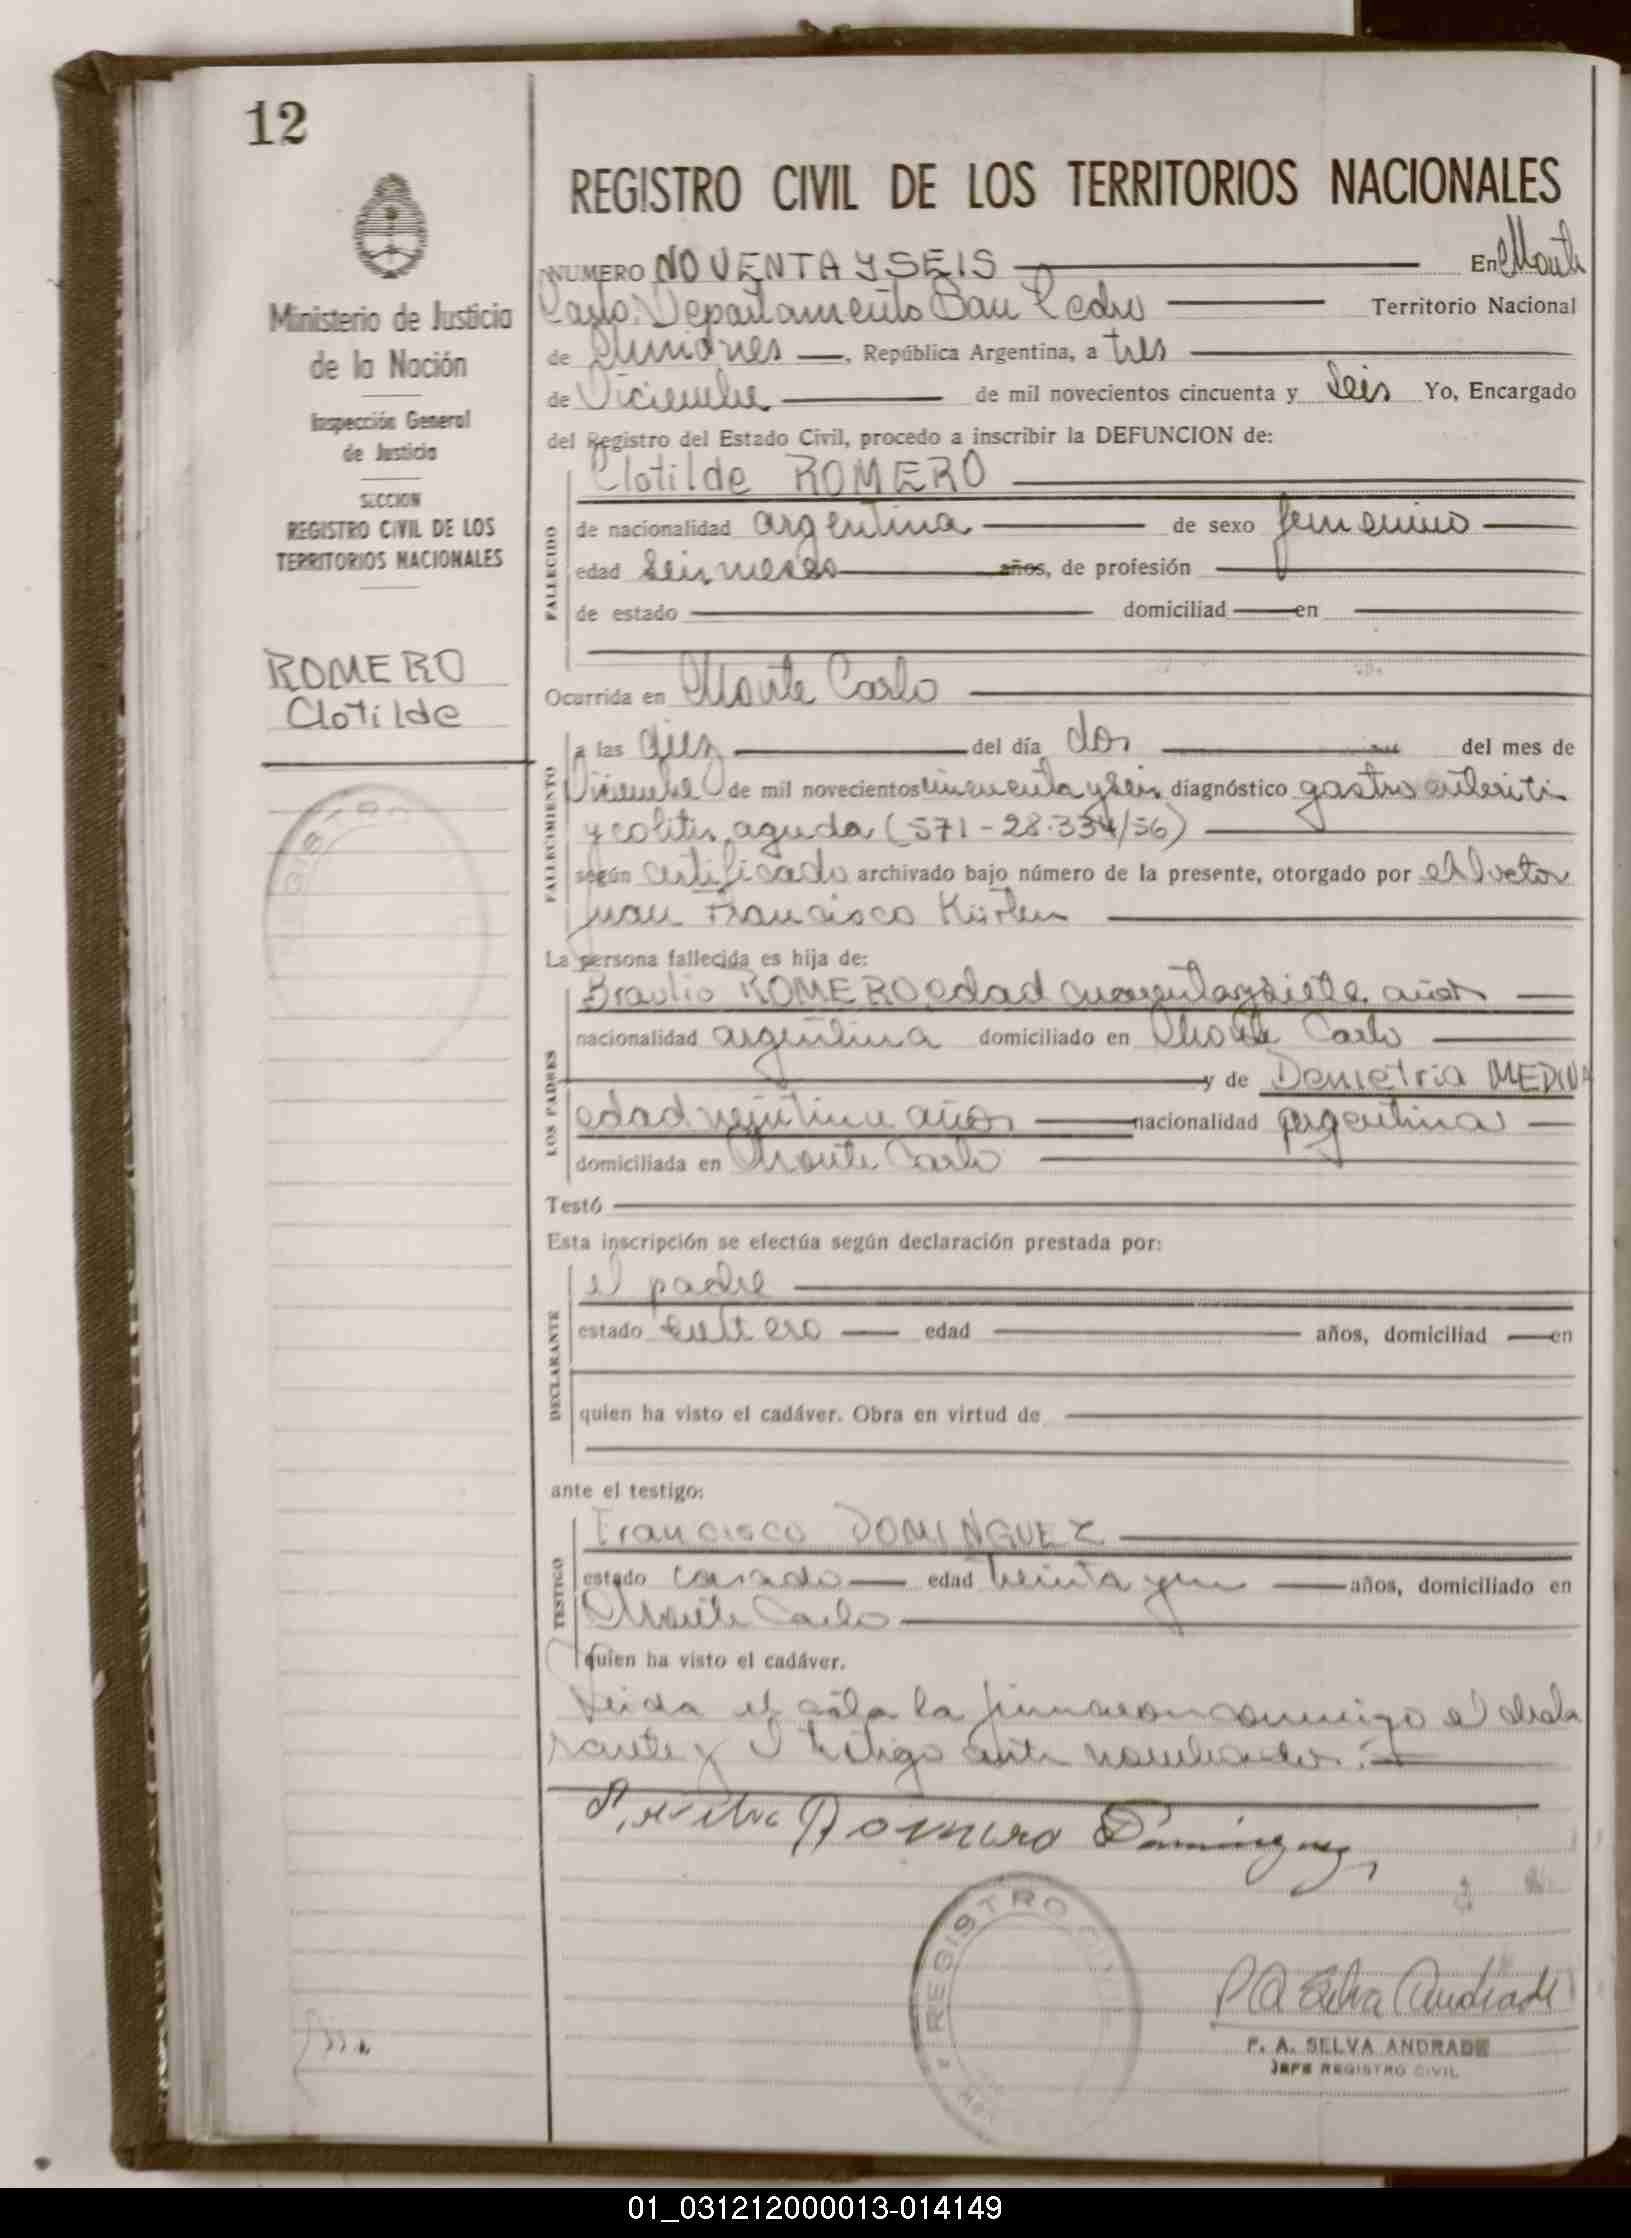 12
REGISTRO CIVIL DE LOS TERRITORIOS NACIONALES
Ministerio de Justicia
de la Nación
Inspección General
de Justicia
SECCION
REGISTRO CIVIL DE LOS
TERRITORIOS NACIONALES
ROMERO
Clotilde
NUMERO NOVENTA Y SEIS En Monte
Carlo: Departamento San Pedro Territorio Nacional
de Misiones, República Argentina, a tres
de Diciembre de mil novecientos cincuenta y seis Yo, Encargado
del Registro del Estado Civil, procedo a inscribir la DEFUNCION de:
FALLECIDO
Clotilde ROMERO
de nacionalidad argentina de sexo femenino
edad seis meses años, de profesión
de estado domiciliad en
Ocurrida en Monte Carlo
FALLECIMIENTO
a las diez del día dos del mes de
Diciembre de mil novecientos cincuenta y seis diagnóstico gastro enteritis
y colitis aguda (571-28.334/56)
según certificado archivado bajo número de la presente, otorgado por el doctor
Juan Francisco
La persona fallecida es hija de:
LOS PADRES
Braulio ROMERO edad cuarenta y siete años
nacionalidad argentina domiciliado en Monte Carlo
y de Demetria MEDINA
edad años nacionalidad argentina
domiciliada en Monte Carlo
Testó
Esta inscripción se efectúa según declaración prestada por:
DECLARANTE
el padre
estado soltero edad años, domiciliad en
quien ha visto el cadáver. Obra en virtud de
ante el testigo:
TESTIGO
Francisco DOMINGUEZ
estado casado edad treinta y un años, domiciliado en
Monte Carlo
quien ha visto el cadáver.
Leida el acta la firmaron conmigo el decla
rante y el testigo ante nombrados.
Romero Dominguez
REGISTRO CIVIL
P A Selva Andrade
P. A. SELVA ANDRADE
JEFE REGISTRO CIVIL
01_031212000013-014149